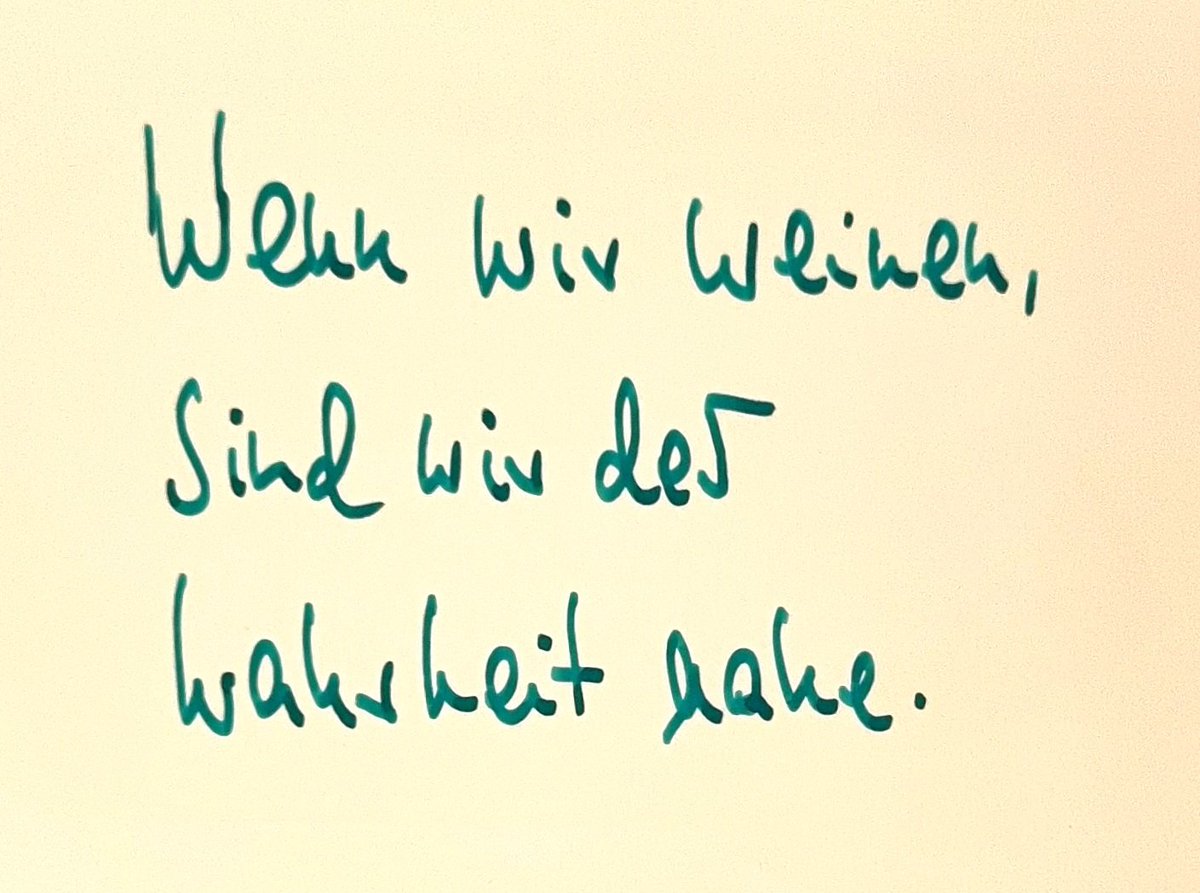 Wenn wir weinen,
sind wir der
Wahrheit nahe.